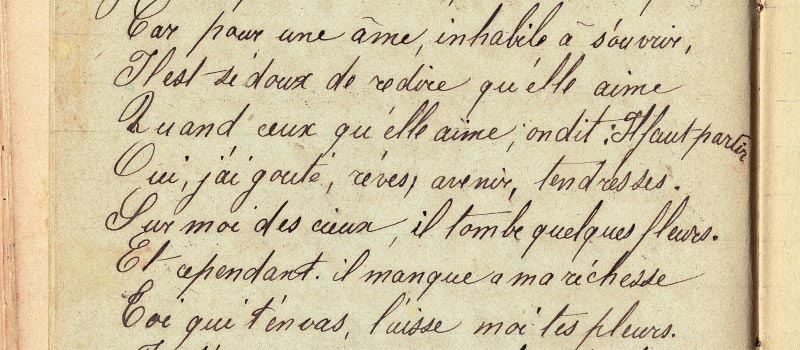 Car pour une âme, inhabile à s'ouvrir,
Il est si doux de redire qu'elle aime
Quand ceux qu'elle aime, ondit: Il faut partir
Oui, j'ai gouté, rêves, avenir, tendresses.
Sur moi des cieux, il tombe quelques fleurs.
Et cependant. il manque a ma richesse
Toi qui t'en vas, l'aisse moi tes pleurs.